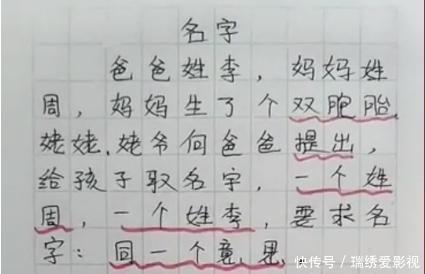 名字
爸爸姓李，妈妈姓
周，妈妈生了个双胞胎，
姥姥、姥爷向爸爸提出，
给孩子取名字，一个姓
周，一个姓李，要求名
字：同一个意思。
快传号/瑞绣爱影视